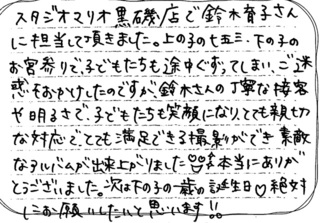 スタジオマリオ黒磯店で鈴木育子さん
に担当して頂きました。上の子の七五三、下の子の
お宮参りで、子どもたちも途中ぐずってしまい、ご迷
惑をおかけしたのですが、鈴木さんの丁寧な接客
や明るさで、子どもたちも笑顔になり、とても親切
な対応でとても満足できる撮影ができ素敵
なアルバムが出来上がりました 本当にありが
とうございました。次は下の子の一歳の誕生日♡絶対
にお願いしたいと思います!!